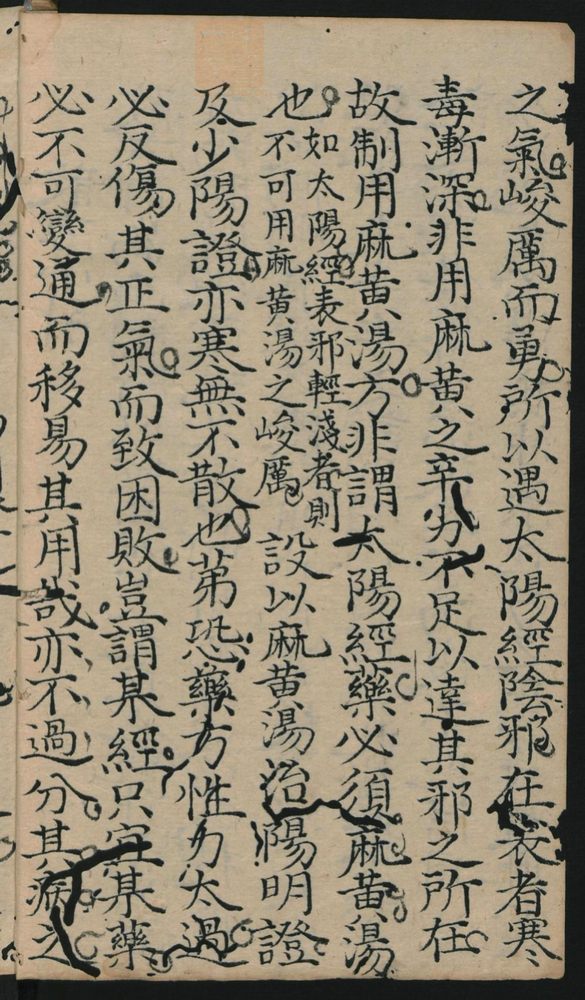 之氣峻厲而勇所以遇太陽經陰邪在表者寒
毒漸深非用麻黃之辛劣不足以達其邪之所在
故制用麻黃湯方非謂太陽經藥必須麻黃湯
也如太陽經表邪輕淺者則
不可用麻黃湯之峻厲設以麻黃湯治陽明證
及少陽證亦寒無不散也苐恐藥方性力太過
必反傷其正氣而致困敗豈謂某經只宜某藥
必不可變通而移易其用哉亦不過分其病之